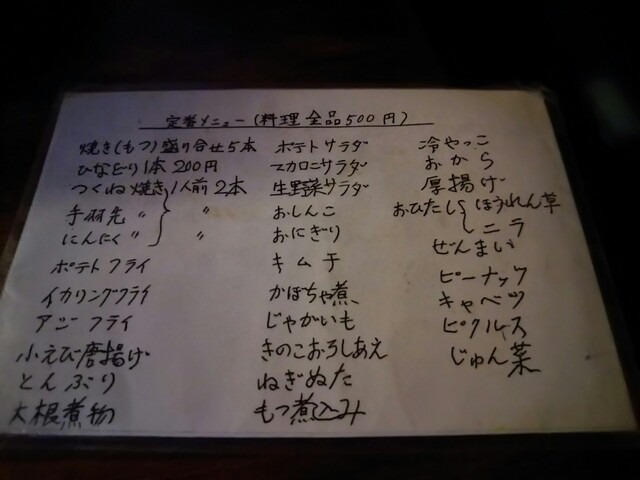 定番メニュー(料理 全品500円)
焼き(もつ)盛り合せ5本
ひなどり1本200円
つくね焼き 1人前2本
手羽先 〃 〃
にんにく 〃 〃
ポテトフライ
イカリングフライ
アジフライ
小えび唐揚げ
とんぶり
大根煮物
ポテトサラダ
マカロニサラダ
生野菜サラダ
おしんこ
おにぎり
キムチ
かぼちゃ煮
じゃがいも
きのこおろしあえ
ねぎぬた
もつ煮込み
冷やっこ
おから
厚揚げ
おひたし ほうれん草
ニラ
ぜんまい
ピーナック
キャベツ
ピクルス
じゅん菜